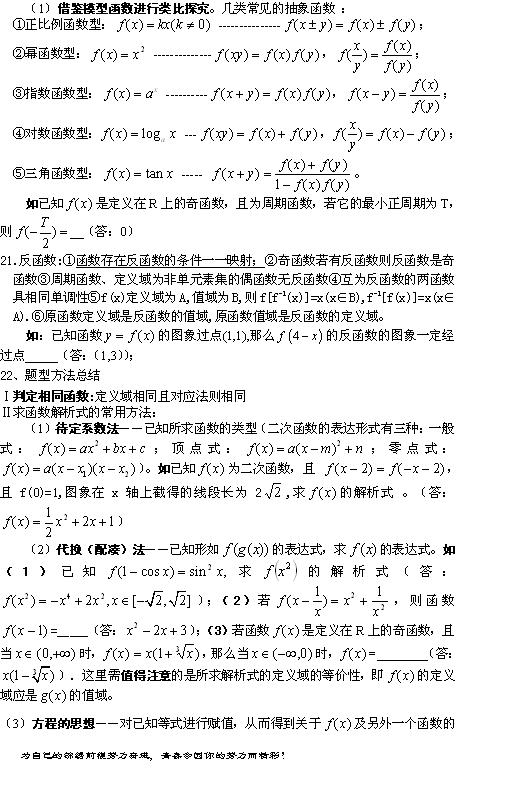 （1）借鉴模型函数进行类比探究。几类常见的抽象函数：
①正比例函数型：f(x)=kx(k≠0) --------------- f(x±y)=f(x)±f(y)；
②幂函数型：f(x)=x² -------------- f(xy)=f(x)f(y)，f(x/y)=f(x)/f(y)；
③指数函数型：f(x)=aˣ ---------- f(x+y)=f(x)f(y)，f(x-y)=f(x)/f(y)；
④对数函数型：f(x)=logₐx --- f(xy)=f(x)+f(y)，f(x/y)=f(x)-f(y)；
⑤三角函数型：f(x)=tanx ----- f(x+y)=(f(x)+f(y))/(1-f(x)f(y))。
如已知f(x)是定义在R上的奇函数，且为周期函数，若它的最小正周期为T，
则f(-T/2)=__（答：0）
21.反函数:①函数存在反函数的条件一一映射；②奇函数若有反函数则反函数是奇
函数③周期函数、定义域为非单元素集的偶函数无反函数④互为反函数的两函数
具相同单调性⑤f(x)定义域为A,值域为B,则f[f⁻¹(x)]=x(x∈B),f⁻¹[f(x)]=x(x∈
A).⑥原函数定义域是反函数的值域,原函数值域是反函数的定义域。
如：已知函数y=f(x)的图象过点(1,1),那么f(4-x)的反函数的图象一定经
过点_____（答：(1,3)）；
22、题型方法总结
Ⅰ判定相同函数:定义域相同且对应法则相同
Ⅱ求函数解析式的常用方法：
（1）待定系数法――已知所求函数的类型（二次函数的表达形式有三种：一般
式：f(x)=ax²+bx+c；顶点式：f(x)=a(x-m)²+n；零点式：
f(x)=a(x-x₁)(x-x₂)）。如已知f(x)为二次函数，且 f(x-2)=f(-x-2)，
且 f(0)=1,图象在 x 轴上截得的线段长为 2√2 ,求f(x)的解析式 。（答：
f(x)=½x²+2x+1）
（2）代换（配凑）法――已知形如f(g(x))的表达式，求f(x)的表达式。如
（1）已知f(1-cosx)=sin²x,求f(x²)的解析式（答：
f(x²)=-x⁴+2x²,x∈[-√2,√2]）；（2）若f(x-1/x)=x²+1/x²，则函数
f(x-1)=_____（答：x²-2x+3）；（3）若函数f(x)是定义在R上的奇函数，且
当x∈(0,+∞)时，f(x)=x(1+³√x)，那么当x∈(-∞,0)时，f(x)=________（答：
x(1-³√x)）. 这里需值得注意的是所求解析式的定义域的等价性，即f(x)的定义
域应是g(x)的值域。
（3）方程的思想――对已知等式进行赋值，从而得到关于f(x)及另外一个函数的